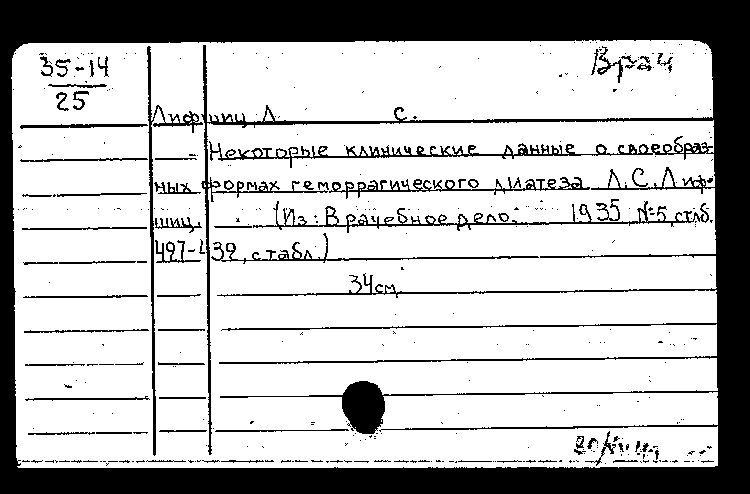 35-14
25
Врач
Лифшиц, Л. С.
Некоторые клинические данные о своеобраз-
ных формах геморрагического диатеза Л. С. Лиф-
шиц. (Из: Врачебное дело. 1935 №5, стлб.
427-432, с табл.)
34см.